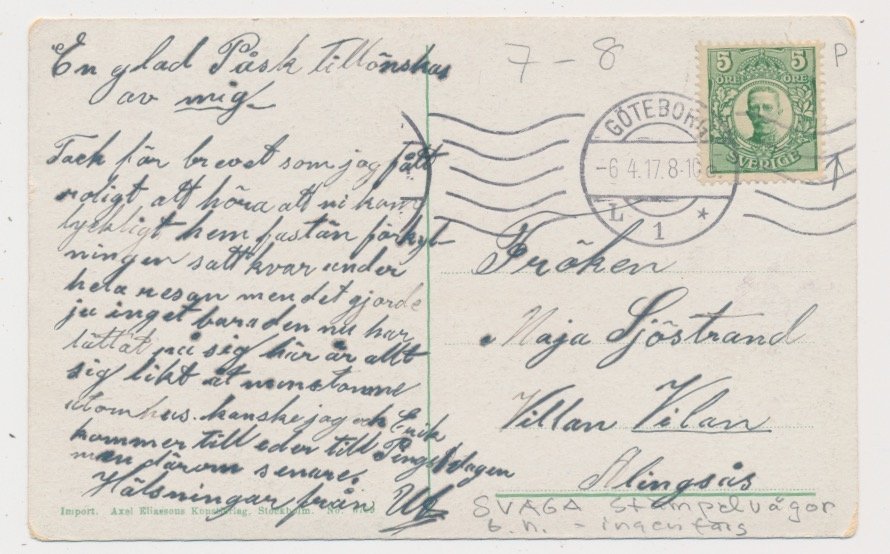 En glad Påsk tillönskas
av mig
Tack för brevet som jag fått
roligt att höra att ni kom
lyckligt hem fastän förkyl-
ningen satt kvar under
hela resan men det gjorde
ju inget bara den nu har
lättat på sig här är allt
sig likt åt minstonne
utomhus. kanske jag och Erik
kommer till eder till Pingstdagen
men därom senare.
Hälsningar från
Import. Axel Eliassons Konstförlag, Stockholm. No.
7-8
P
5 5
ÖRE ÖRE
SVERIGE
GÖTEBORG
-6.4.17.8-10
L *
1
Fröken
Maja Sjöstrand
Villan Vilan
Alingsås
SVAGA stämpelvågor
t.h. - ingen färg